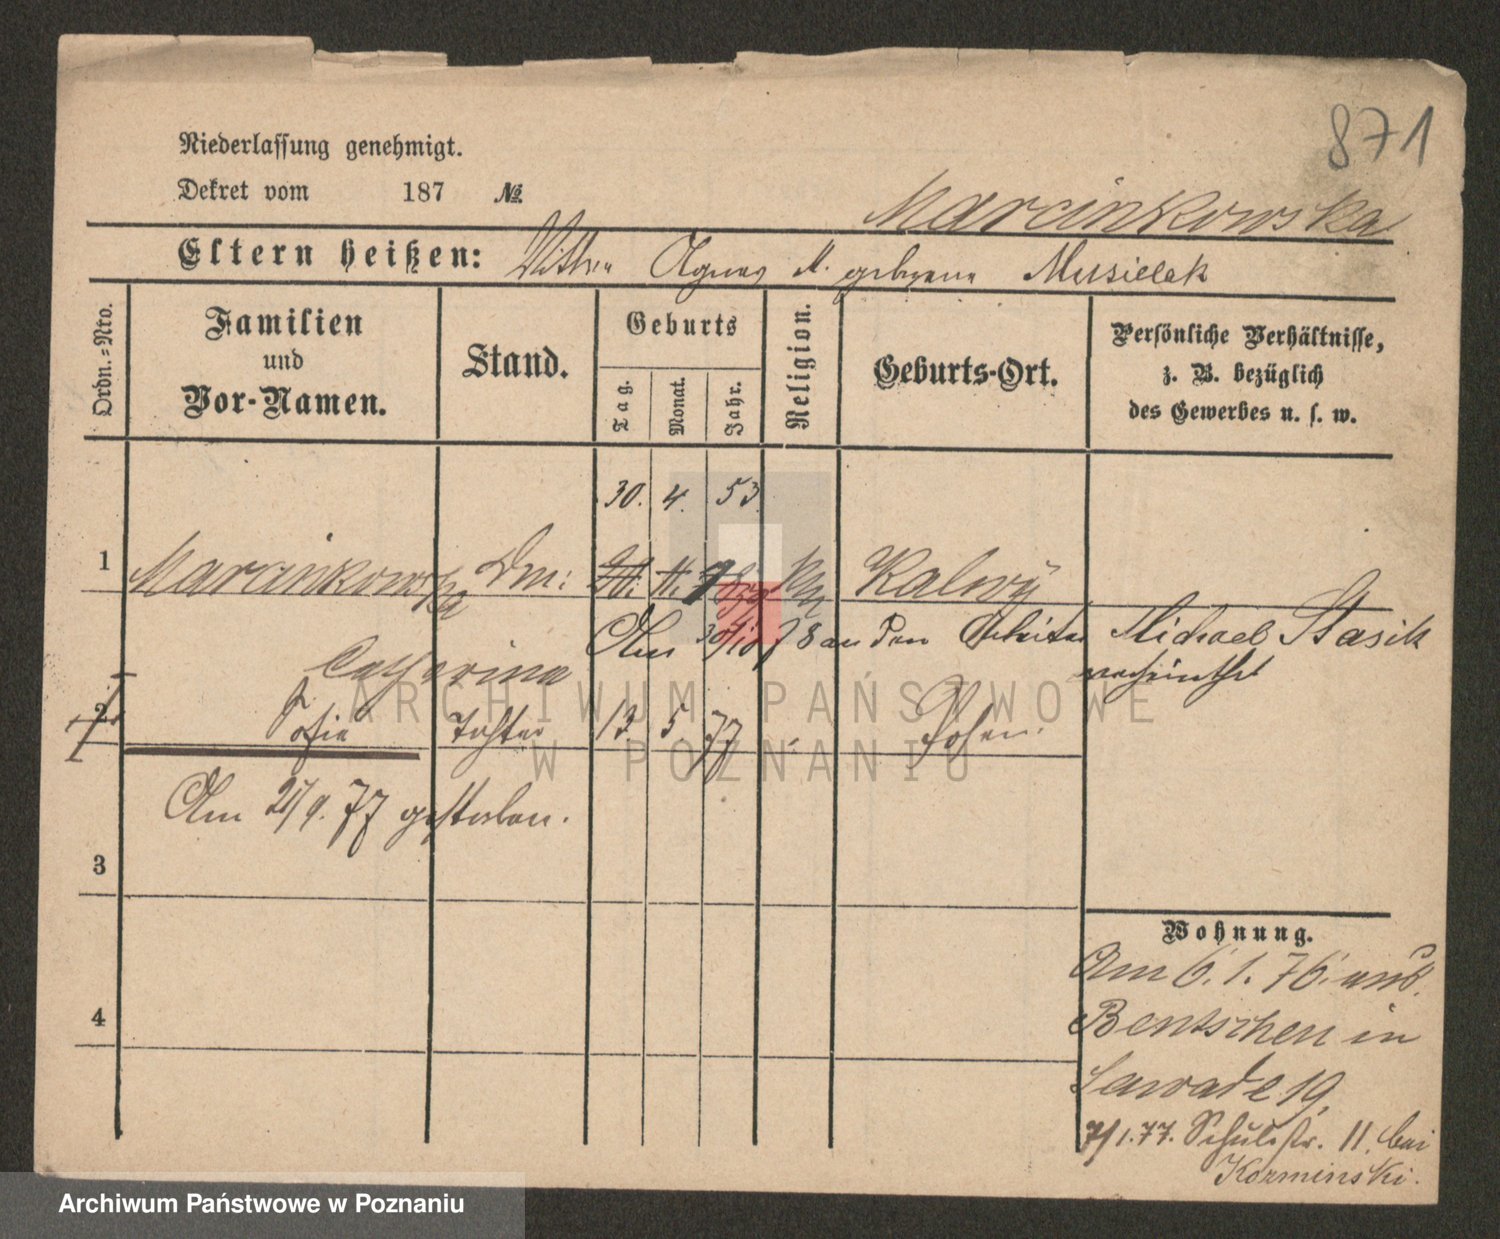 871
Niederlassung genehmigt.
Dekret vom 187 №
Marcinkowska
Eltern heißen: Agnes M. geborene Musielak
Ordn.=Nro.
Familien und Vor-Namen.
Stand.
Geburts
Tag.
Monat.
Jahr.
Religion.
Geburts-Ort.
Persönliche Verhältnisse,
z. B. bezüglich
des Gewerbes u. s. w.
30. 4. 53
1 Marcinkowska Kalwy
Am 30/10 78 an den Arbeiter Michael Stasik
Catharina
verheirathet
2 Sofie Tochter 13. 5. 77 Posen.
Am 21/9. 77 gestorben.
3
4
Wohnung.
Am 6. 1. 76. aus
Bentschen in
Zawade 19.
7/1. 77. Schulstr. 11. bei
Kozminski.
ARCHIWUM PAŃSTWOWE
W POZNANIU
Archiwum Państwowe w Poznaniu